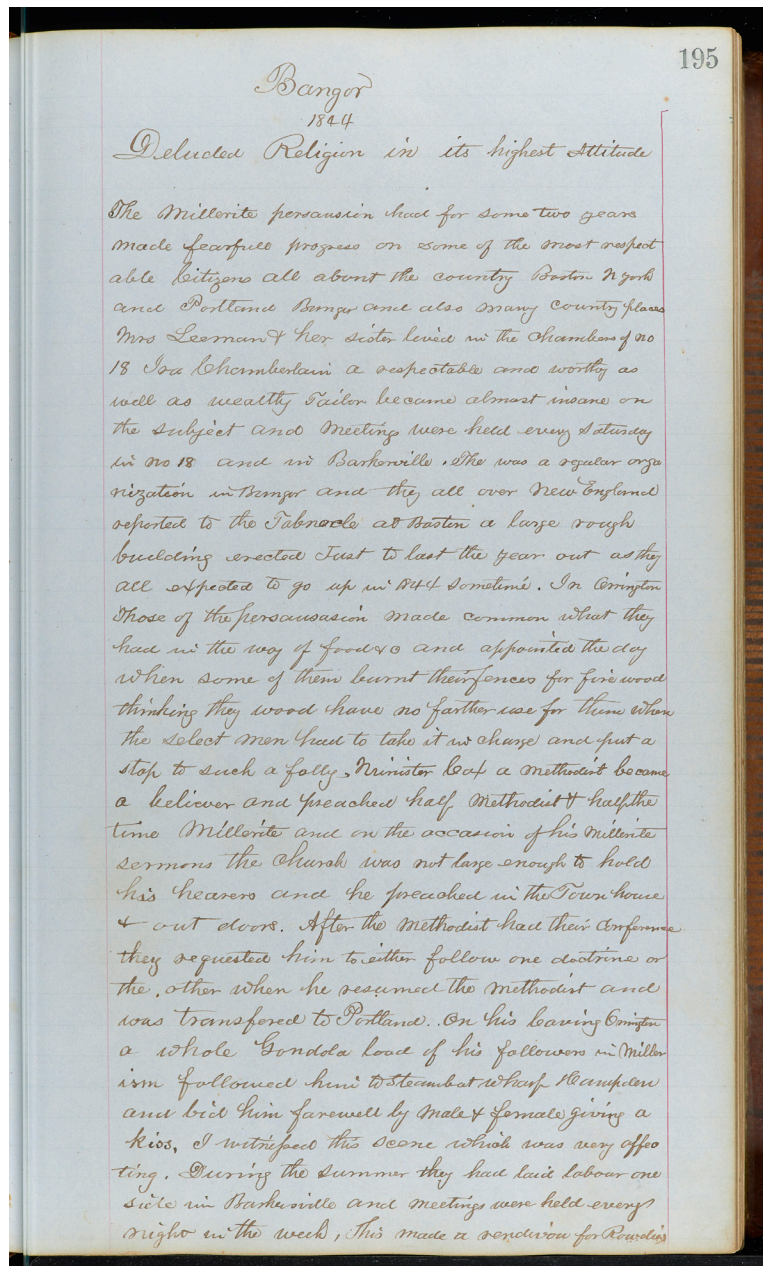 195
Bangor
1844
Deluded Religion in its highest Attitude
The Millerite persausion had for some two years
made fearfull progress on some of the most respect
able Citizens all about the country Boston N york
and Portland Bangor and also many county places
Mrs Leeman & her sister lived in the chambers of no
18 Ira Chamberlain a respectable and worthy as
well as wealthy Tailor became almost insane on
the subject and Meetings were held every Saturday
in no 18 and in Barkerville. The was a regular orga
nization in Bangor and they all over New England
reported to the Tabnacle at Boston a large rough
building erected Just to last the year out as they
all expected to go up in 1844 sometime. In Orrington
Those of the persausasion made common what they
had in the way of food &c and appointed the day
when some of them burnt their fences for fire wood
thinking they wood have no farther use for them when
the select men had to take it in charge and put a
stop to such a folly. Minister Cox a Methodist became
a believer and preached half Methodist & half the
time Millerite and on the occasion of his Millerite
sermons the church was not large enough to hold
his hearers and he preached in the Town house
& out doors. After the Methodist had their Conference
they requested him to either follow one doctrine or
the other when he resumed the Methodist and
was transfered to Portland. On his leaving Orrington
a whole Gondola load of his followers in Miller
ism followed him to Steambat wharf Hampden
and bid him farewell by Male & female giving a
kiss, I witnessed this scene which was very affec
ting. During the summer they had laid labour one
side in Barkersville and meetings were held every
night in the week, This made a rendivou for Rowdies